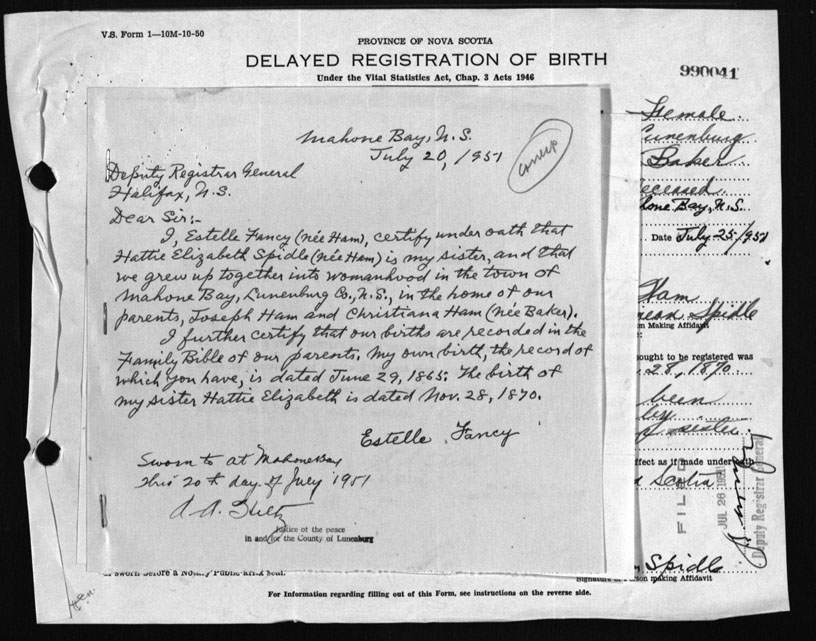 V.S. Form 1—10M-10-50
PROVINCE OF NOVA SCOTIA
DELAYED REGISTRATION OF BIRTH
Under the Vital Statistics Act, Chap. 3 Acts 1946
990041
Mahone Bay, N.S.
July 20, 1951
Deputy Registrar General
Halifax, N.S.
Dear Sir:-
I, Estelle Fancy (née Ham), certify under oath that
Hattie Elizabeth Spidle (née Ham) is my sister, and that
we grew up together into womanhood in the town of
Mahone Bay, Lunenburg Co., N.S., in the home of our
parents, Joseph Ham and Christiana Ham (née Baker).
I further certify that our births are recorded in the
Family Bible of our parents. My own birth, the record of
which you have, is dated June 29, 1865. The birth of
my sister Hattie Elizabeth is dated Nov. 28, 1870.
Estelle Fancy
Sworn to at Mahone Bay
this 20th day of July 1951
Justice of the peace
in and for the County of Lunenburg
Female
Lunenburg
Baker
eceased
hone Bay, N.S.
Date July 25/1951
Ham
ean Spidle
on Making Affidavit
ought to be registered was
28, 1870.
been
by
sister
ffect as if made under oath
Scotia
FILED
JUL 26 1951
Deputy Registrar General
Spidle
Signature of Person making Affidavit
or sworn before a Notary Public affix seal.
For Information regarding filling out of this Form, see instructions on the reverse side.